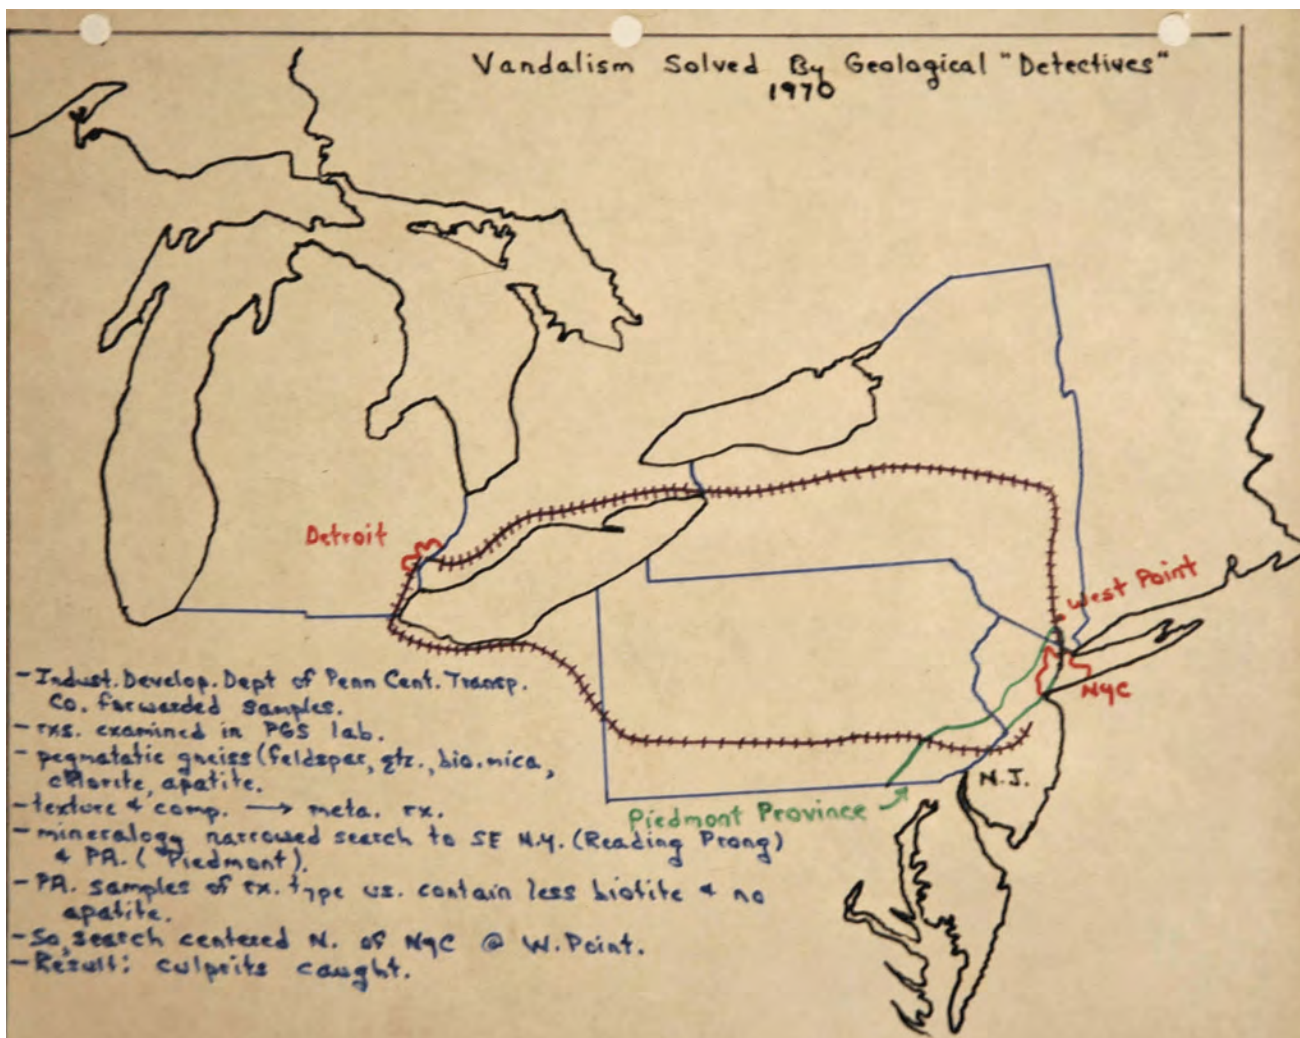 Vandalism Solved By Geological "Detectives"
1970
Detroit
West Point
NYC
N.J.
Piedmont Province
- Indust. Develop. Dept of Penn Cent. Transp.
Co. forwarded samples.
- rxs. examined in PGS lab.
- pegmatatic gneiss (feldspar, qtz., bio. mica,
chlorite, apatite.
- texture & comp. → meta. rx.
- mineralogy narrowed search to SE N.Y. (Reading Prong)
& PA. ("Piedmont).
- PA. samples of rx. type us. contain less biotite & no
apatite.
- So, search centered N. of NYC @ W. Point.
- Result: culprits caught.